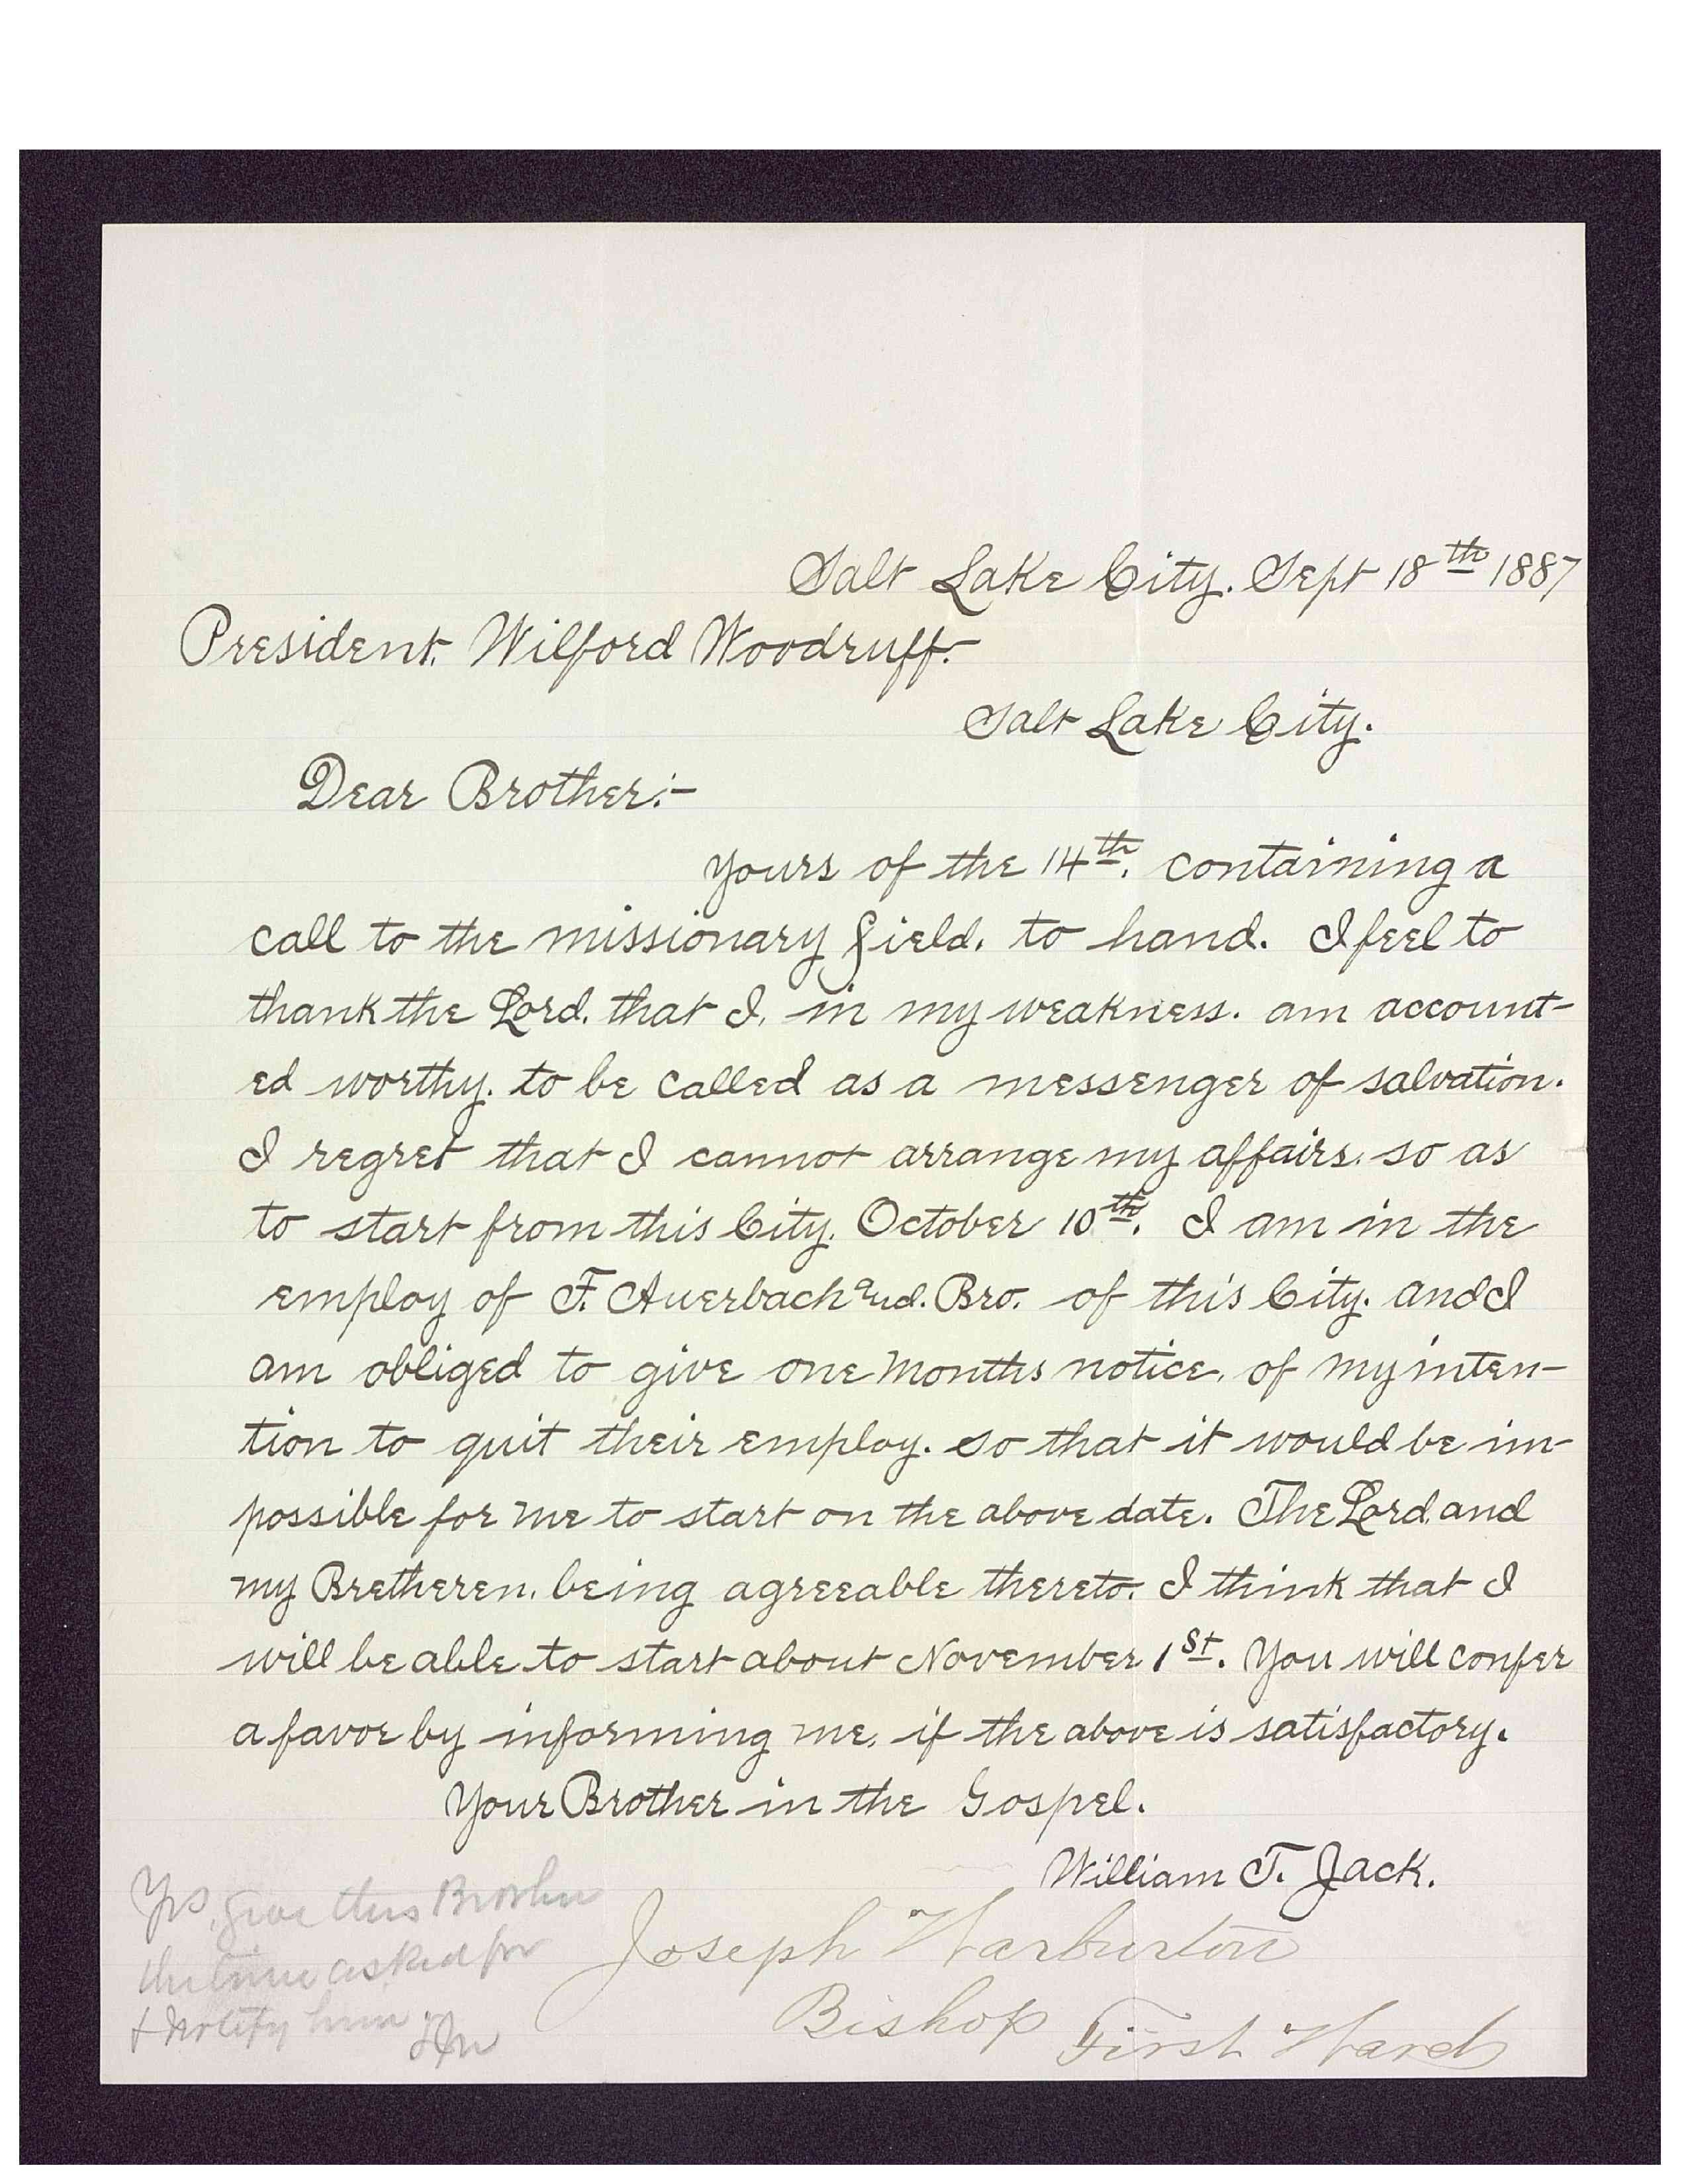 Salt Lake City. Sept 18th 1887
President. Wilford Woodruff.
Salt Lake City.
Dear Brother:-
Yours of the 14th. containing a
call to the missionary field, to hand. I feel to
thank the Lord. that I, in my weakness. am account-
ed worthy. to be called as a messenger of salvation.
I regret that I cannot arrange my affairs. so as
to start from this City. October 10th. I am in the
employ of F. Auerbach and. Bro. of this City. and I
am obliged to give one months notice, of my inten-
tion to quit their employ. so that it would be im-
possible for me to start on the above date. The Lord and
my Bretheren. being agreeable thereto. I think that I
will be able to start about November 1st. You will confer
a favor by informing me, if the above is satisfactory.
Your Brother in the Gospel.
William T. Jack.
Joseph Warburton
Bishop First Ward
Yes, give this Brother
the time asked for
& notify him